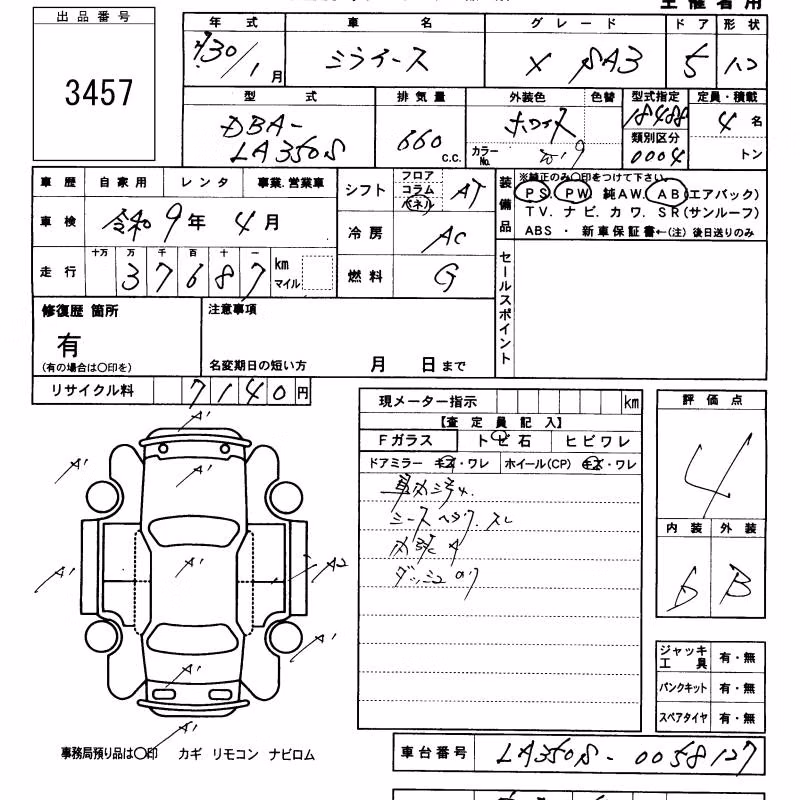 主催者用
出品番号
3457
年式 車名 グレード ドア 形状
H30/1月 ミライース X SA3 5 ハコ
型式 排気量 外装色 色替 型式指定 定員・積載
DBA-
LA350S
660 c.c.
ホワイト
カラーNo. W19
18488
類別区分
0004
4名
トン
車歴 自家用 レンタ 事業.営業車
車検 令和9年4月
走行 十万 万 千 百 十 一
37687 km
マイル
シフト フロア コラム パネル AT
冷房 AC
燃料 G
装備品
※純正のみ〇印をつけて下さい。
PS. PW. 純AW. AB(エアバック)
TV. ナビ. カワ. SR(サンルーフ)
ABS ・ 新車保証書←(注) 後日送りのみ
セールスポイント
修復歴 箇所
有
(有の場合は〇印を)
注意事項
名変期日の短い方 月 日まで
リサイクル料 7140円
現メーター指示 km
【査定員記入】
Fガラス トビ石 ヒビワレ
ドアミラー キズ・ワレ ホイール(CP) キズ・ワレ
車内ヨゴレ
シートヘタリ.スレ
内張A
ダッシュ
評価点
4
内装 外装
6 B
A'
A'
A'
A'
A' A' A2
A'
A'
A'
A'
ジャッキ工具 有・無
パンクキット 有・無
スペアタイヤ 有・無
事務局預り品は〇印 カギ リモコン ナビロム
車台番号 LA350S-0058127